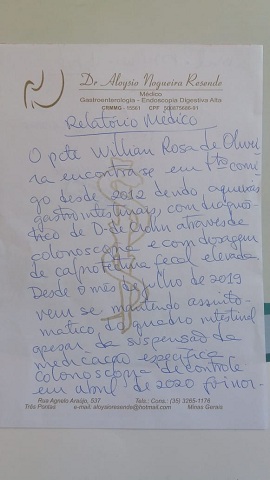 Dr Aloysio Nogueira Resende
Médico
Gastroenterologia - Endoscopia Digestiva Alta
CRMMG - 10561 CPF
Relatório Médico
O pcte Willian Rosa de Olivei
ra encontra-se em ttº comi
go desde 2012 dendo a queixas
gastrointestinais com diagnós
tico de D. de Crohn através de
colonoscopia e com dosagem
de calprotectina fecal elevada.
Desde o mês de julho de 2019
vem se mantendo assinto-
mático do quadro intestinal
apesar da suspensão da
medicação específica
colonoscopia de controle
em abril de 2020 foi nor-
Rua Agnelo Araújo, 537 Tele.: Cons.: (35) 3265-1176
Três Pontas e-mail: aloysioresende@hotmail.com Minas Gerais